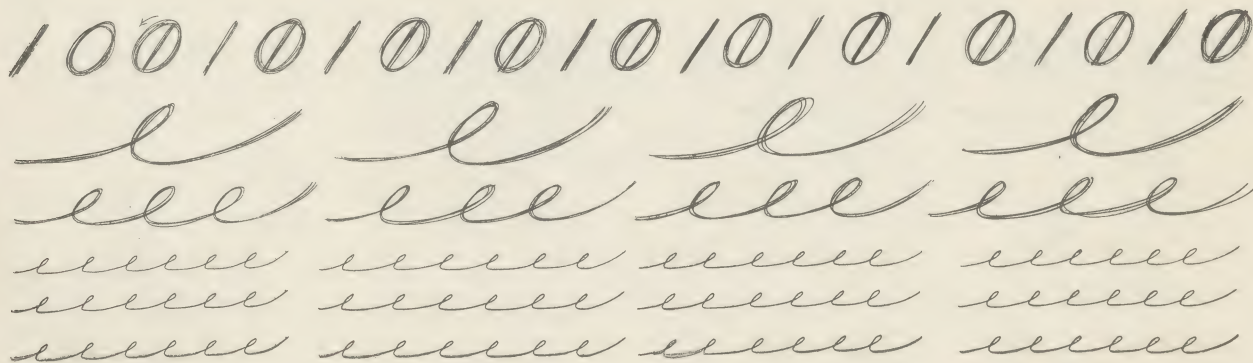 / O 0 / 0 / 0 / 0 / 0 / 0 / 0 / 0 / 0 / 0
e e e e
eee eee eee eee
eeeeee eeeeee eeeeee eeeeee
eeeeee eeeeee eeeeee eeeeee
eeeeee eeeeee eeeeee eeeeee